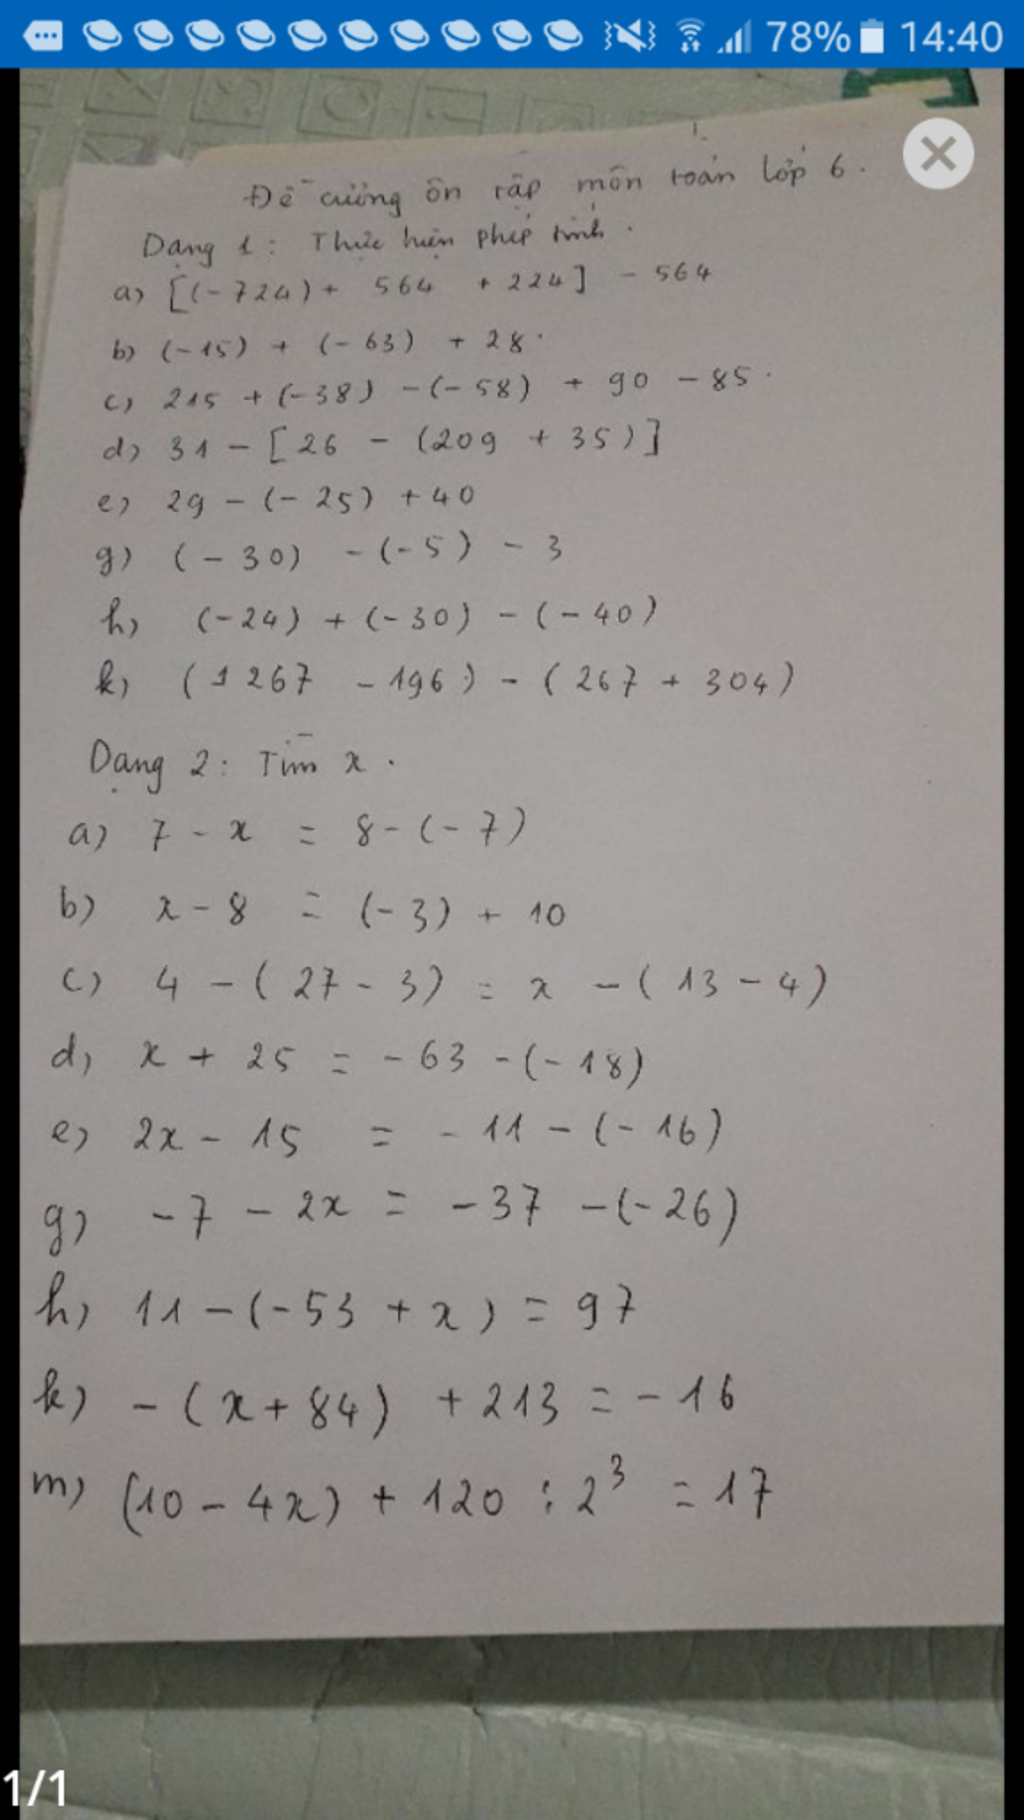 78% 14:40
Đề cương ôn tập môn toán lớp 6.
Dạng 1: Thực hiện phép tính.
a) [(-724) + 564 + 224] - 564
b) (-15) + (-63) + 28.
c) 215 + (-38) - (-58) + 90 - 85.
d) 31 - [26 - (209 + 35)]
e) 29 - (-25) + 40
g) (-30) - (-5) - 3
h) (-24) + (-30) - (-40)
k) (1267 - 196) - (267 + 304)
Dạng 2: Tìm x.
a) 7 - x = 8 - (-7)
b) x - 8 = (-3) + 10
c) 4 - (27 - 3) = x - (13 - 4)
d) x + 25 = -63 - (-18)
e) 2x - 15 = -11 - (-16)
g) -7 - 2x = -37 - (-26)
h) 11 - (-53 + x) = 97
k) -(x + 84) + 213 = -16
m) (10 - 4x) + 120 : 2³ = 17
1/1